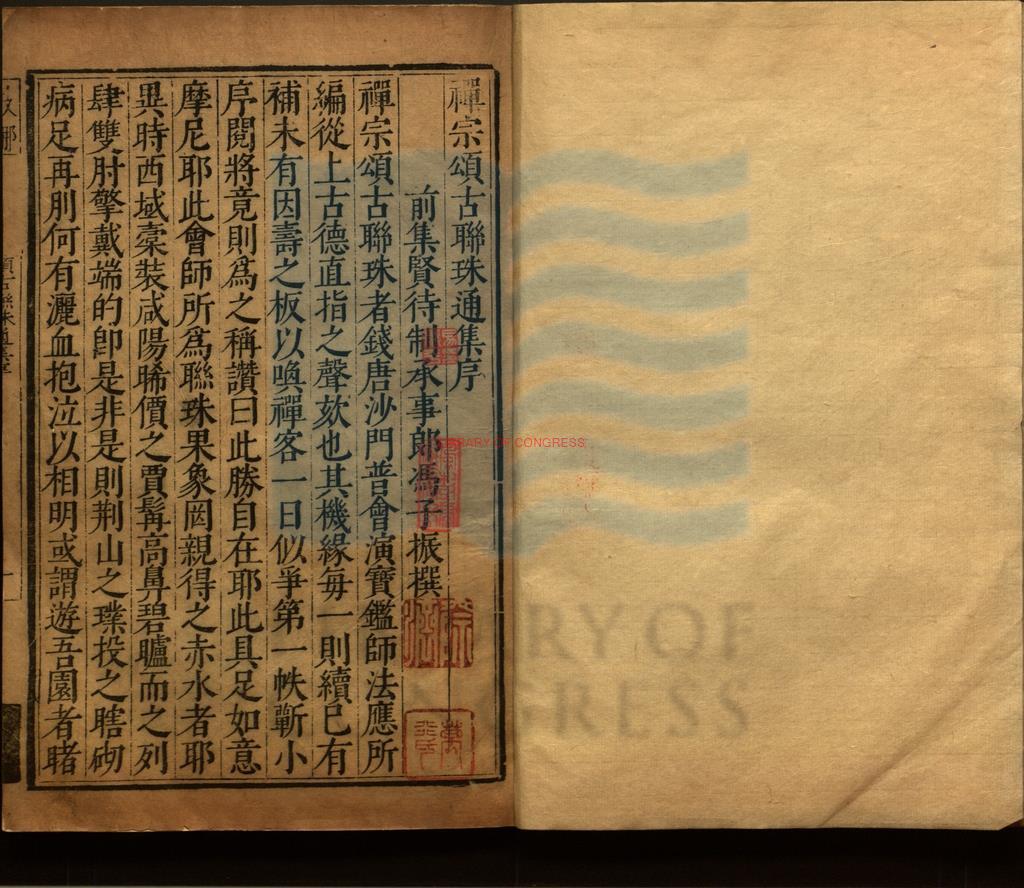 禪宗頌古聯珠通集序
前集賢待制承事郎馮子振撰
禪宗頌古聯珠者錢唐沙門普會演寶鑑師法應所
編從上古德直指之聲欬也其機緣每一則續已有
補未有因壽之板以喚禪客一日似爭第一帙蘄小
序閱將竟則爲之稱讚曰此勝自在耶此具足如意
摩尼耶此會師所爲聯珠果象罔親得之赤水者耶
異時西域橐裝咸陽晞價之賈髯高鼻碧矑而之列
肆雙肘擎戴端的卽是非是則荆山之璞投之瞎砌
病足再刖何有灑血抱泣以相明或謂遊吾園者睹
一
LIBRARY OF CONGRESS
RY OF
GRESS